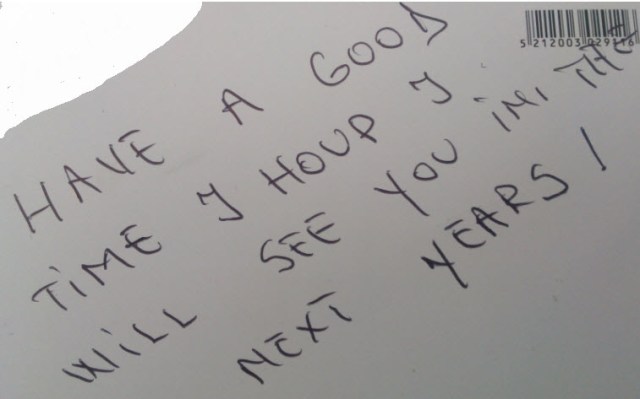 5 212003 029116
HAVE A GOOD
TIME J HOUP J
WILL SEE YOU IN THE
NEXT YEARS!